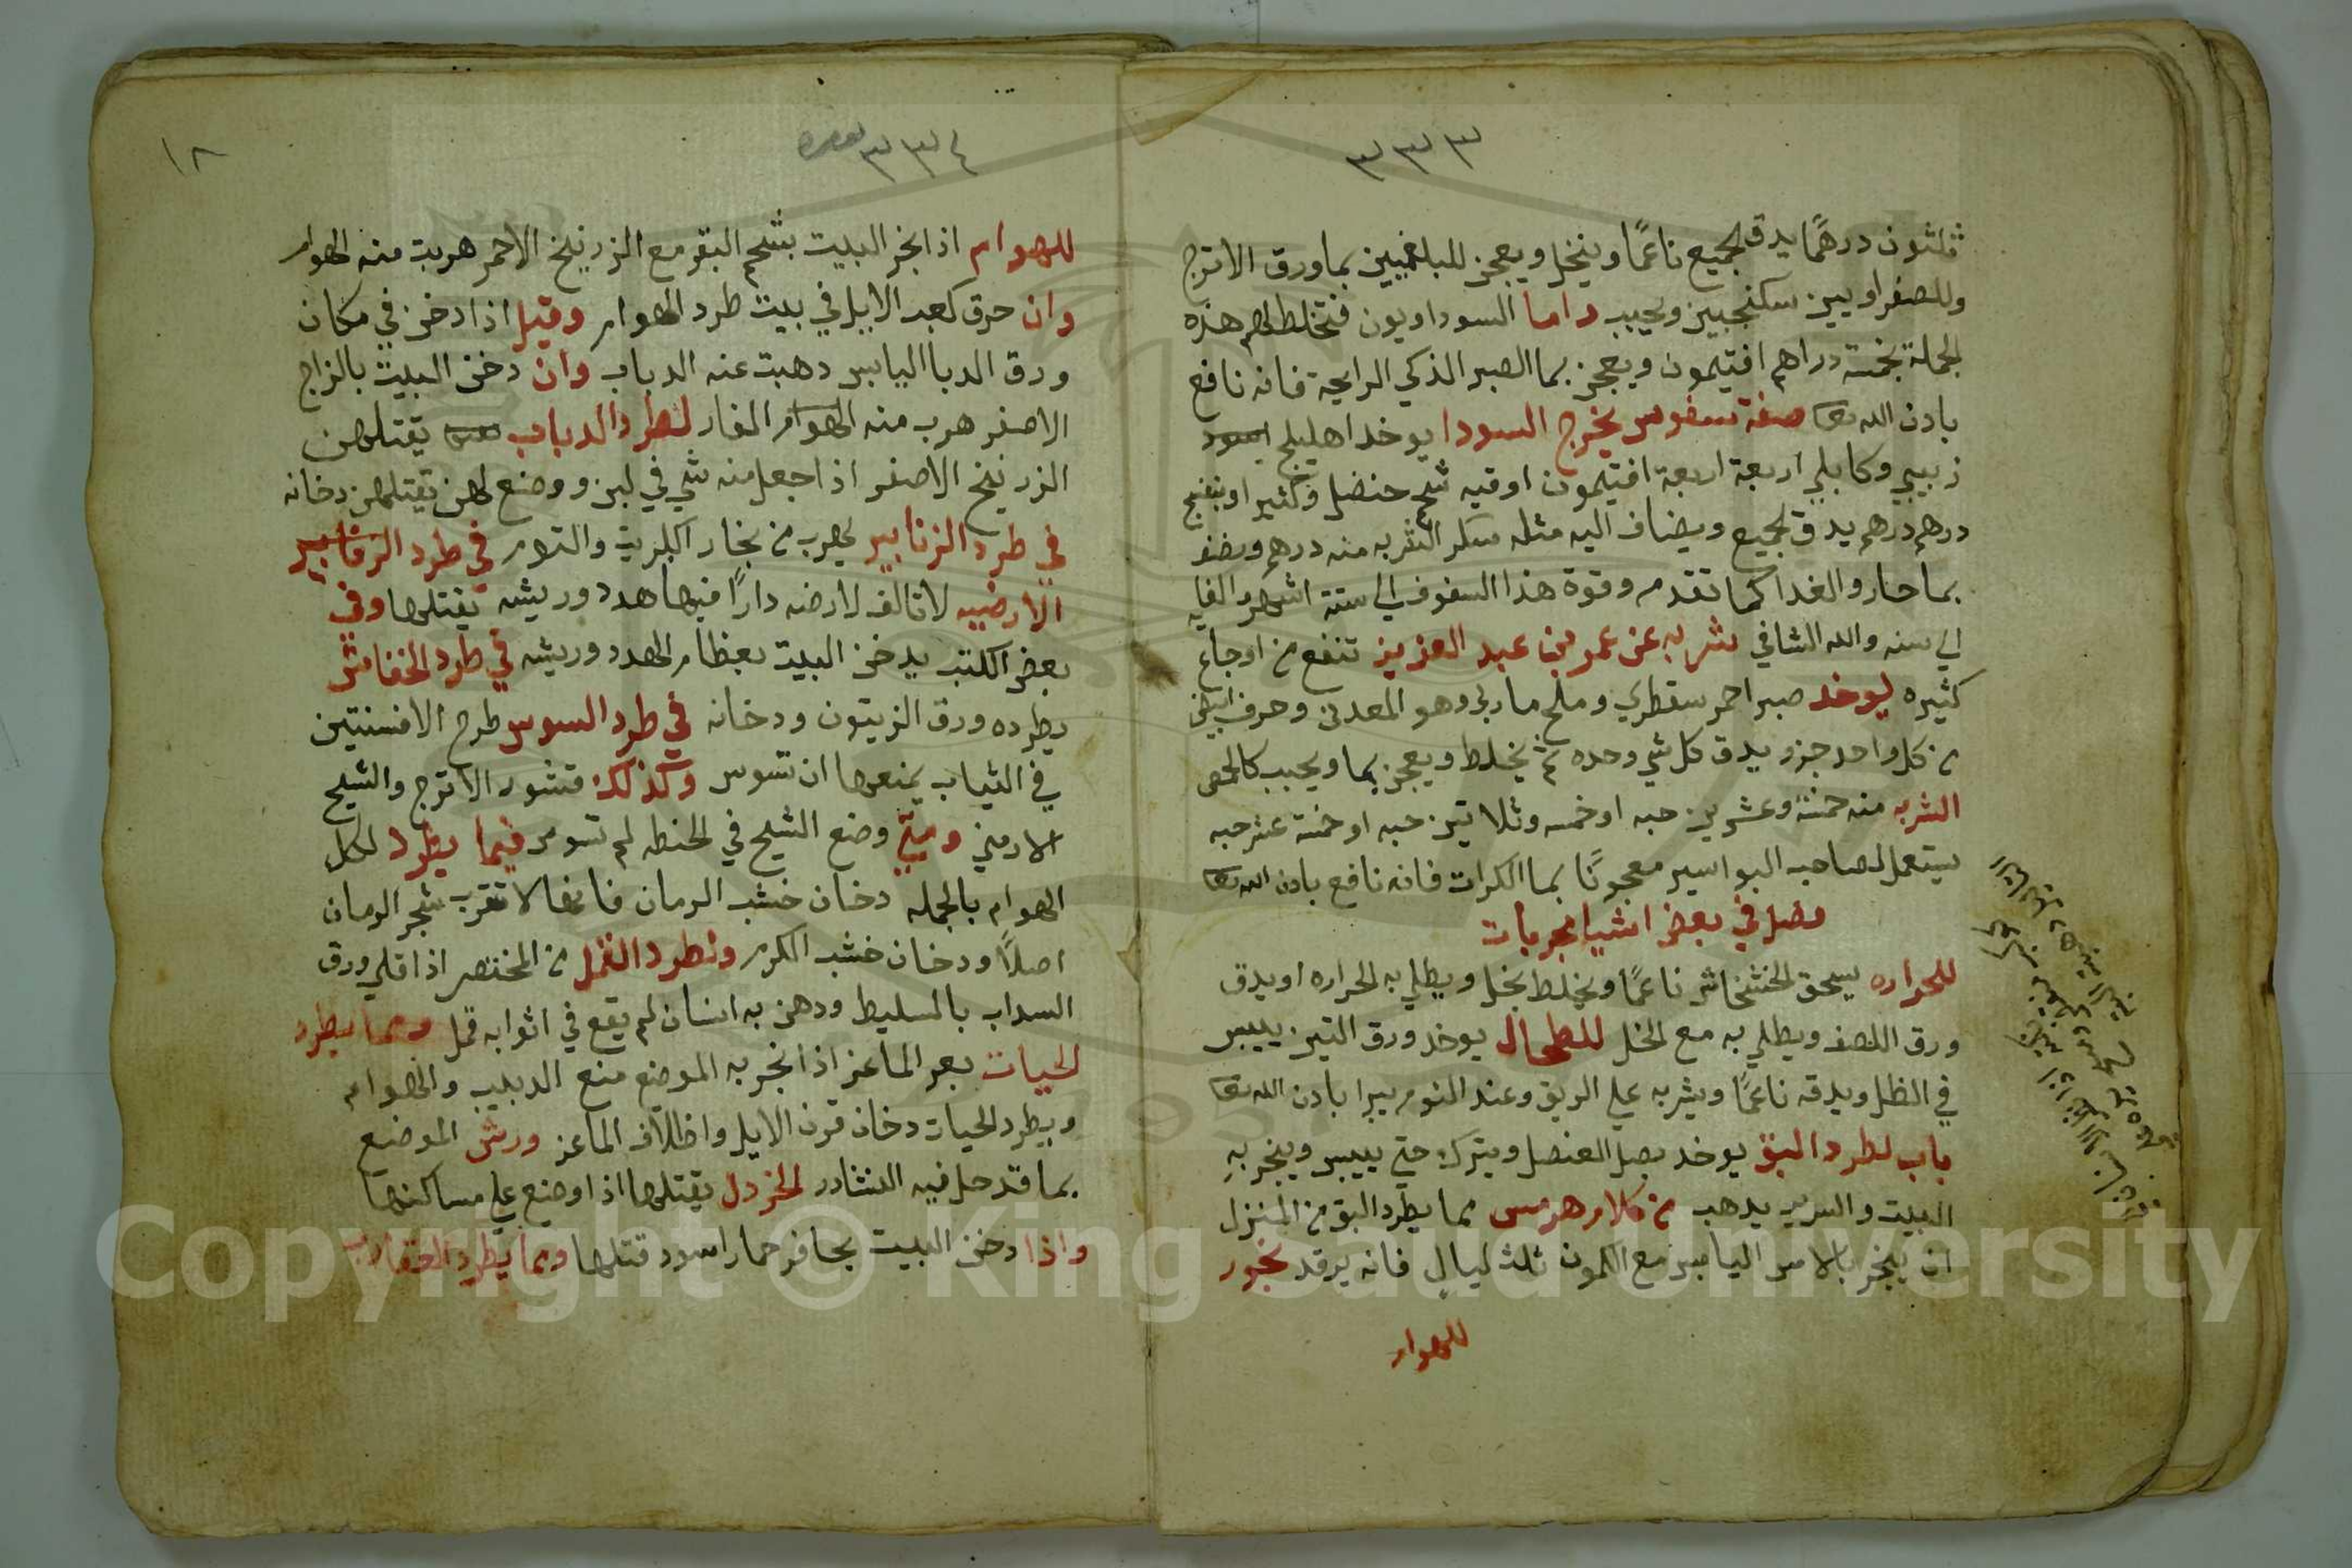 ٣٣٣
ثلثون درهمًا يدق الجميع ناعمًا وينخل ويعجن للبلغميين بماورق الاترج
وللصفراويين سكنجبين ويحبب واما السوداويون فتخلط لهم هذه
الجملة بخمسة دراهم افتيمون ويعجن بما الصبر الذكي الرايحة فانه نافع
باذن الله تعا صفة سفوف يخرج السودا يوخد اهليلج اسود
زبيبي وكابلي اربعة اربعة افتيمون اوقيه شحم حنضل وكثيرا وبنفسج
درهم درهم يدق الجميع ويضاف اليه مثله سكر الشربه منه درهم ونصف
بما حار والغدا كما تقدم وقوة هذا السفوف الي ستة اشهر والغايه
الي سنه والله الشافي شربه عن عمر بن عبد العزيز تنفع من اوجاع
كثيره يوخد صبر احمر سقطري وملح ماربي وهو المعدني وحرف ابيض
من كل واحد جزو يدق كل شي وحده ثم يخلط ويعجن بما ويحبب كالحمص
الشربه منه خمسة وعشرين حبه او خمسه وثلاثين حبه او خمسة عشر حبه
يستعمل لصاحب البواسير معجونًا بما الكراث فانه نافع باذن الله تعا
فصل في بعض اشيا مجربات
للحراره يسحق الخشخاش ناعمًا ويخلط بخل ويطلي به الحراره او يدق
ورق اللصف ويطلي به مع الخل للطحال يوخد ورق التين ييبس
في الظل ويدقه ناعمًا ويشربه علي الريق وعند النوم يبرا باذن الله تعا
باب لطرد البق يوخد بصل العنصل ويترك حتي ييبس ويبخر به
البيت والسرير يذهب من كلام هرمس مما يطرد البق من المنزل
ان يبخر بالاس اليابس مع الكمون ثلث ليالٍ فانه يرقد بخور
للهوام
٣٣٤
١٨
للهوام اذا بخر البيت بشحم البقر مع الزرنيخ الاحمر هربت منه الهوام
وان حرق كعب الايل في بيت طرد الهوام وقيل اذا دخن في مكان
ورق الدبا اليابس ذهبت عنه الدباب وان دخن البيت بالزاج
الاصفر هرب منه الهوام الفار لطرد الدباب يقتلهن
الزرنيخ الاصفر اذا جعل منه شي في لبن ووضع لهن يقتلهن دخانه
في طرد الزنابير يهرب من بخار الكبريت والثوم في طرد الزنابير
الارضيه لا تالف الارضه دارًا فيها هدهد وريشه يقتلها وفي
بعض الكتب يدخن البيت بعظام الهدهد وريشه في طرد الخفاش
يطرده ورق الزيتون ودخانه في طرد السوس طرح الافسنتين
في الثياب يمنعها ان تسوس وكذلك قشور الاترج والشيح
الارمني ومتي وضع الشيح في الحنطه لم تسوس فيما يطرد لكل
الهوام بالجمله دخان خشب الرمان فانها لا تقرب شجر الرمان
اصلاً ودخان خشب الكرم ولطرد القمل من المختصر اذا قلي ورق
السداب بالسليط ودهن به انسان لم يقع في اثوابه قمل ومما يطرد
الحيات بعر الماعز اذا بخر به الموضع منع الدبيب والهوام
ويطرد الحيات دخان قرن الايل واظلاف الماعز ورش الموضع
بما قد حل فيه النشادر الخردل يقتلها اذا وضع علي مساكنها
واذا دخن البيت بحافر حمار اسود قتلها ومما يطرد العقارب
Copyright © King Saud University